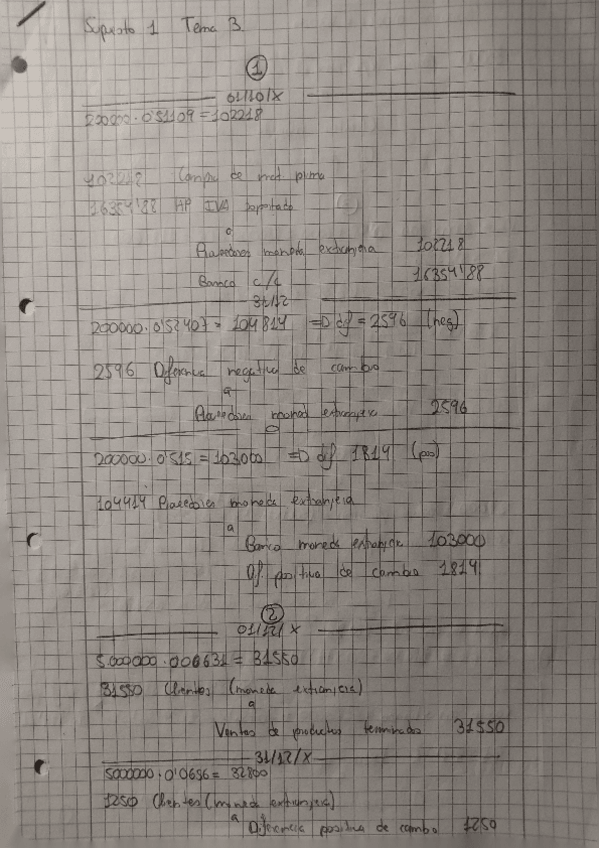 Supuesto 1 Tema 3
1
01/10/X
200000 · 0'51109 = 102218
102218 Compra de mat prima
16354'88 HP IVA soportado
a
Proveedores moneda extranjera 102218
Banco c/c 16354'88
31/12
200000 · 0'52407 = 104814 => df = 2596 (neg)
2596 Diferencia negativa de cambio
a
Proveedores moned extranjera 2596
200000 · 0'515 = 103000 => df 1814 (pos)
104414 Proveedores moneda extranjera
a
Banco moneda extranjera 103000
Df. positiva de cambio 1814
2
01/12/X
5.000000 · 000631 = 31550
31550 Clientes (moneda extranjera)
a
Ventas de productos terminados 31550
31/12/X
5000000 · 0'0656 = 32800
1250 Clientes (moneda extranjera)
a Diferencia positiva de cambio 1250